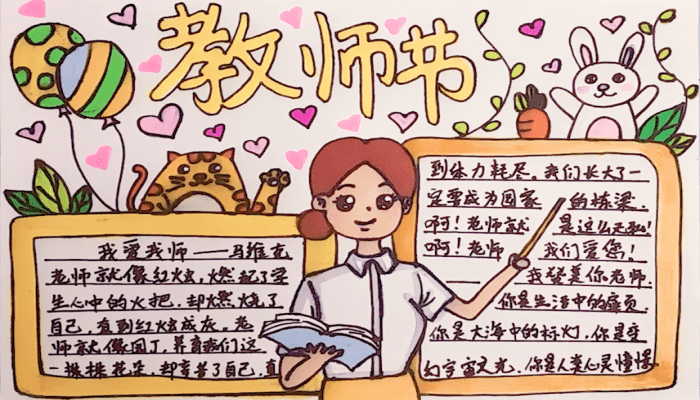 教师节
我爱我师——马维克
老师就像红烛，燃起了学
生心中的火把，却燃烧了
自己，直到红烛成灰。老
师就像园丁，养育我们这
一棵棵花朵，却辛苦了自己，直
到体力耗尽。我们长大了一
定要成为国家 的栋梁.
啊！老师就 是这么无私！
啊！老师 我们爱您！
我赞美你老师.
你是生活中的扉页
你是大海中的标灯，你是变
幻宇宙之光，你是人类心灵憧憬